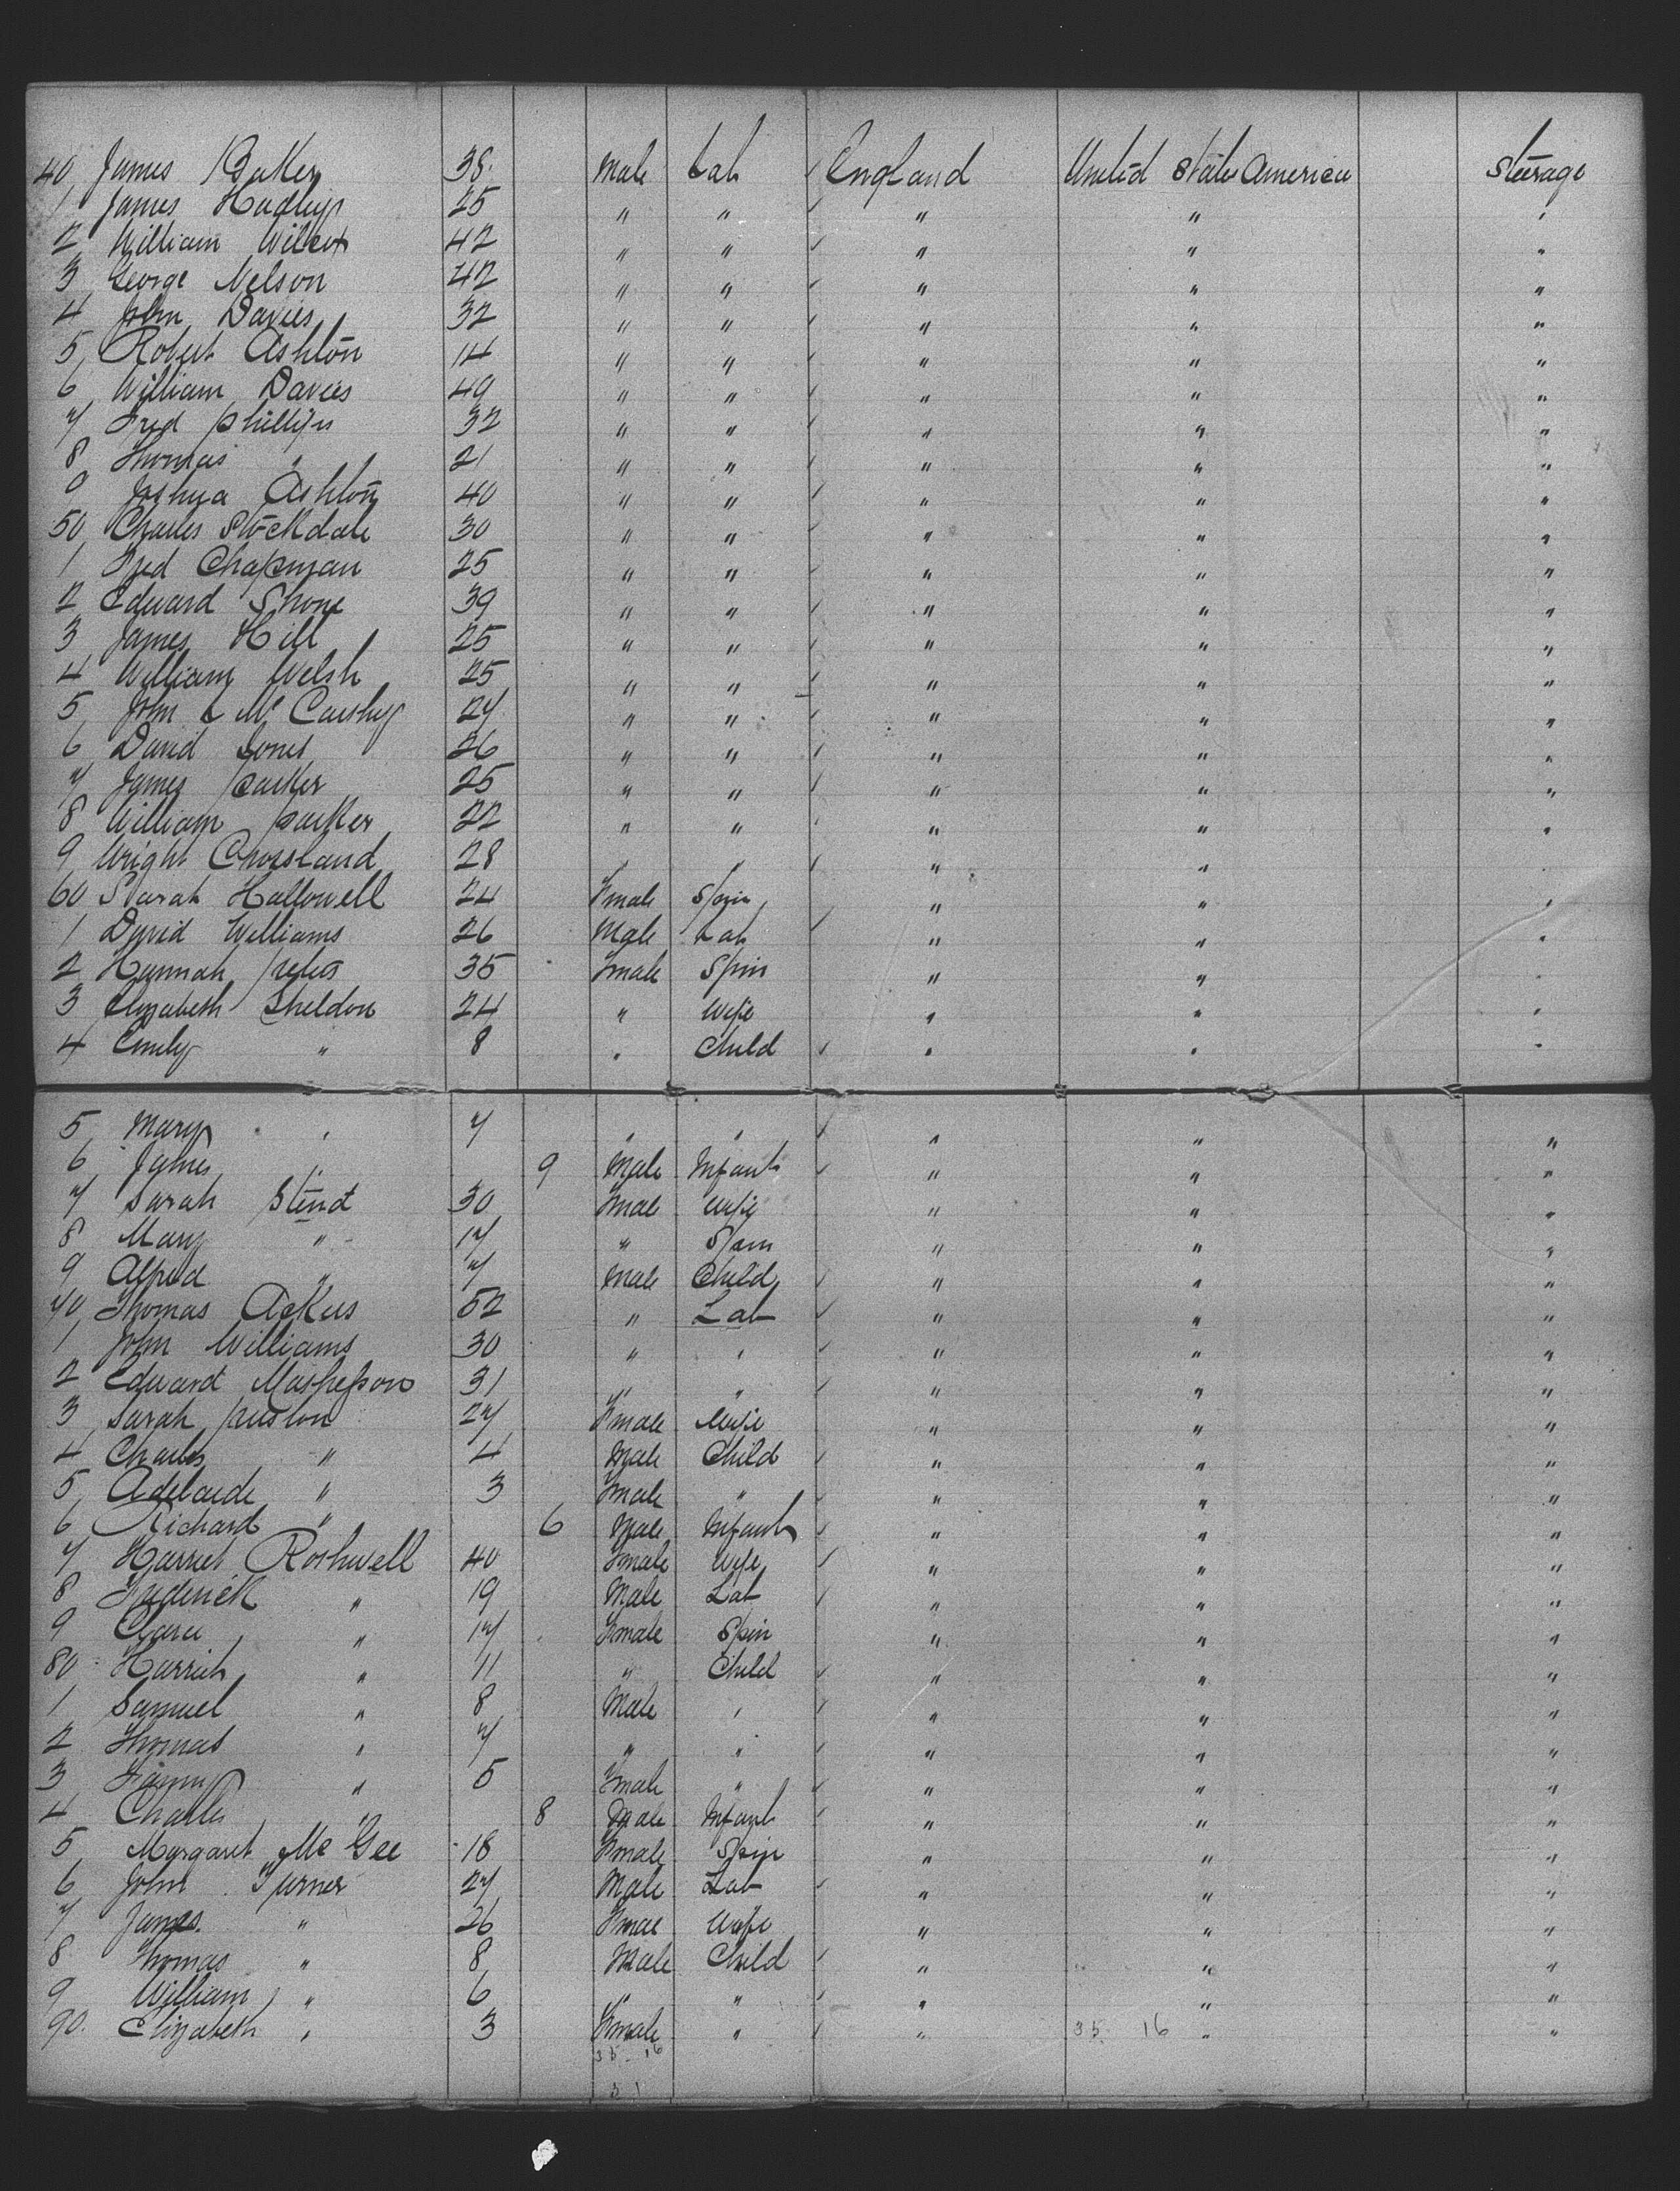 40 James Baker 38 Male Lab England United States America Steerage
1 James Hadley 25 " " " " "
2 William Wilcox 42 " " " " "
3 George Nelson 42 " " " " "
4 John Davies 32 " " " " "
5 Robert Ashton 14 " " " " "
6 William Davies 49 " " " " "
7 Fred Phillips 32 " " " " "
8 Thomas " 21 " " " " "
9 Joshua Ashton 40 " " " " "
50 Charles Stockdale 30 " " " " "
1 Fred Chapman 25 " " " " "
2 Edward Shone 39 " " " " "
3 James Hill 25 " " " " "
4 William Welsh 25 " " " " "
5 John Mc Carthy 27 " " " " "
6 David Jones 26 " " " " "
7 James Parker 25 " " " " "
8 William Parker 22 " " " " "
9 Wright Crossland 28 " " " " "
60 Sarah Hallowell 24 Female Spin " " "
1 David Williams 26 Male Lab " " "
2 Hannah 35 Female Spin " " "
3 Elizabeth Sheldon 24 " Wife " " "
4 Emily " 8 " Child " " "
5 Mary " 7 " " " " "
6 James " 9 Male Infant " " "
7 Sarah 30 Female Wife " " "
8 Mary " 17 " Spin " " "
9 Alfred " 7 Male Child " " "
70 Thomas 52 " Lab " " "
1 John Williams 30 " " " " "
2 Edward 31 " " " " "
3 Sarah Preston 27 Female Wife " " "
4 Charles " 4 Male Child " " "
5 Adelaide " 3 Female " " " "
6 Richard " 6 Male Infant " " "
7 Harriet Rothwell 40 Female Wife " " "
8 Frederick " 19 Male Lab " " "
9 Clara " 17 Female Spin " " "
80 Harriet " 11 " Child " " "
1 Samuel " 8 Male " " " "
2 Thomas " 7 " " " " "
3 Fanny " 5 Female " " " "
4 Charles " 8 Male Infant " " "
5 Margaret Mc Gee 18 Female Spin " " "
6 John Turner 27 Male Lab " " "
7 James " 26 Female Wife " " "
8 Thomas " 8 Male Child " " "
9 William " 6 " " " " "
90 Elizabeth " 3 Female " " 35 16 " "
35 - 16
31